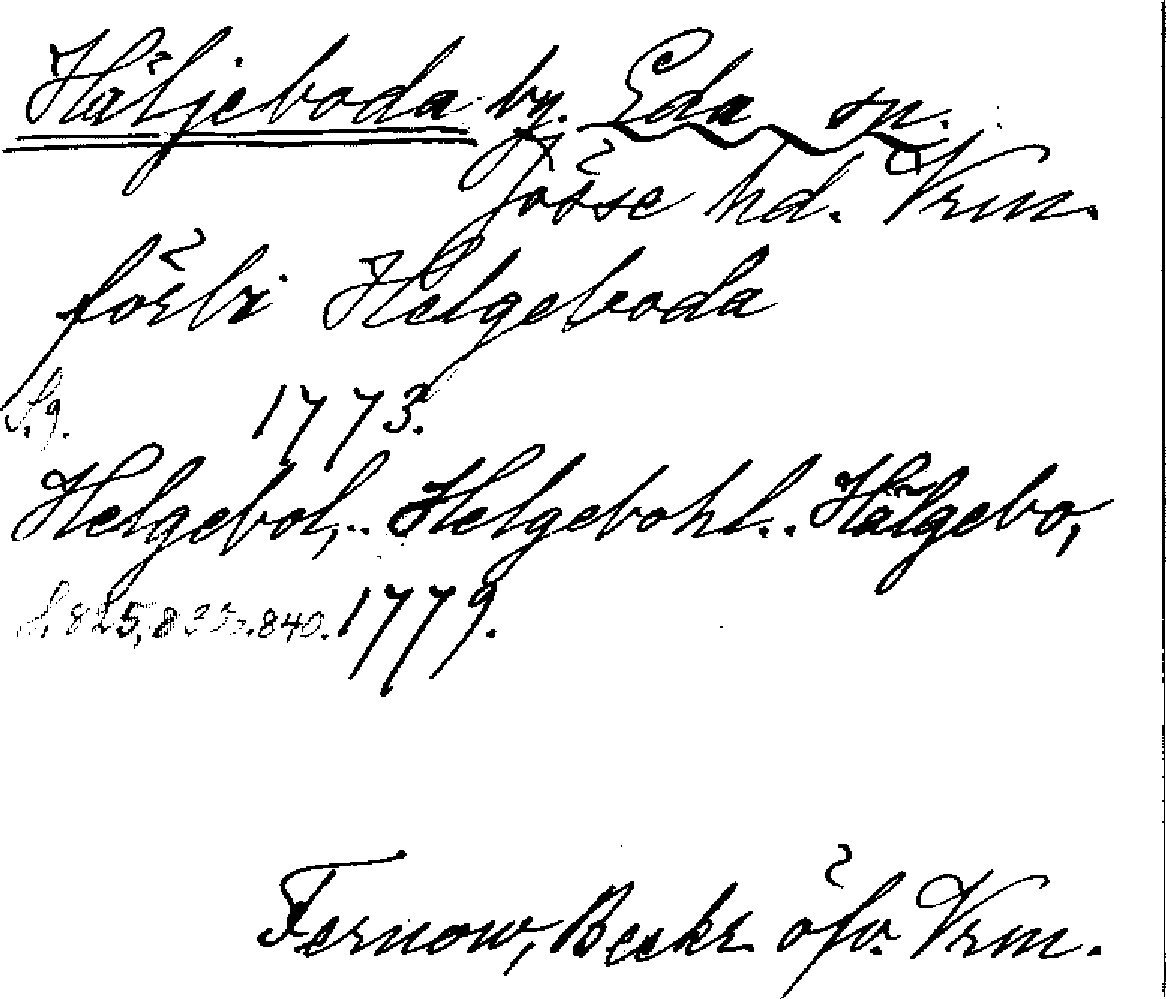 Häljeboda by. Eda sn.
Jösse hd. Vrm.
förbi Helgeboda
S. 9. 1773.
Helgebol,.. Helgebohl.. Hälgebo,
S. 825, 835, 840. 1779.
Fernow, Beskr. öfv. Vrm.